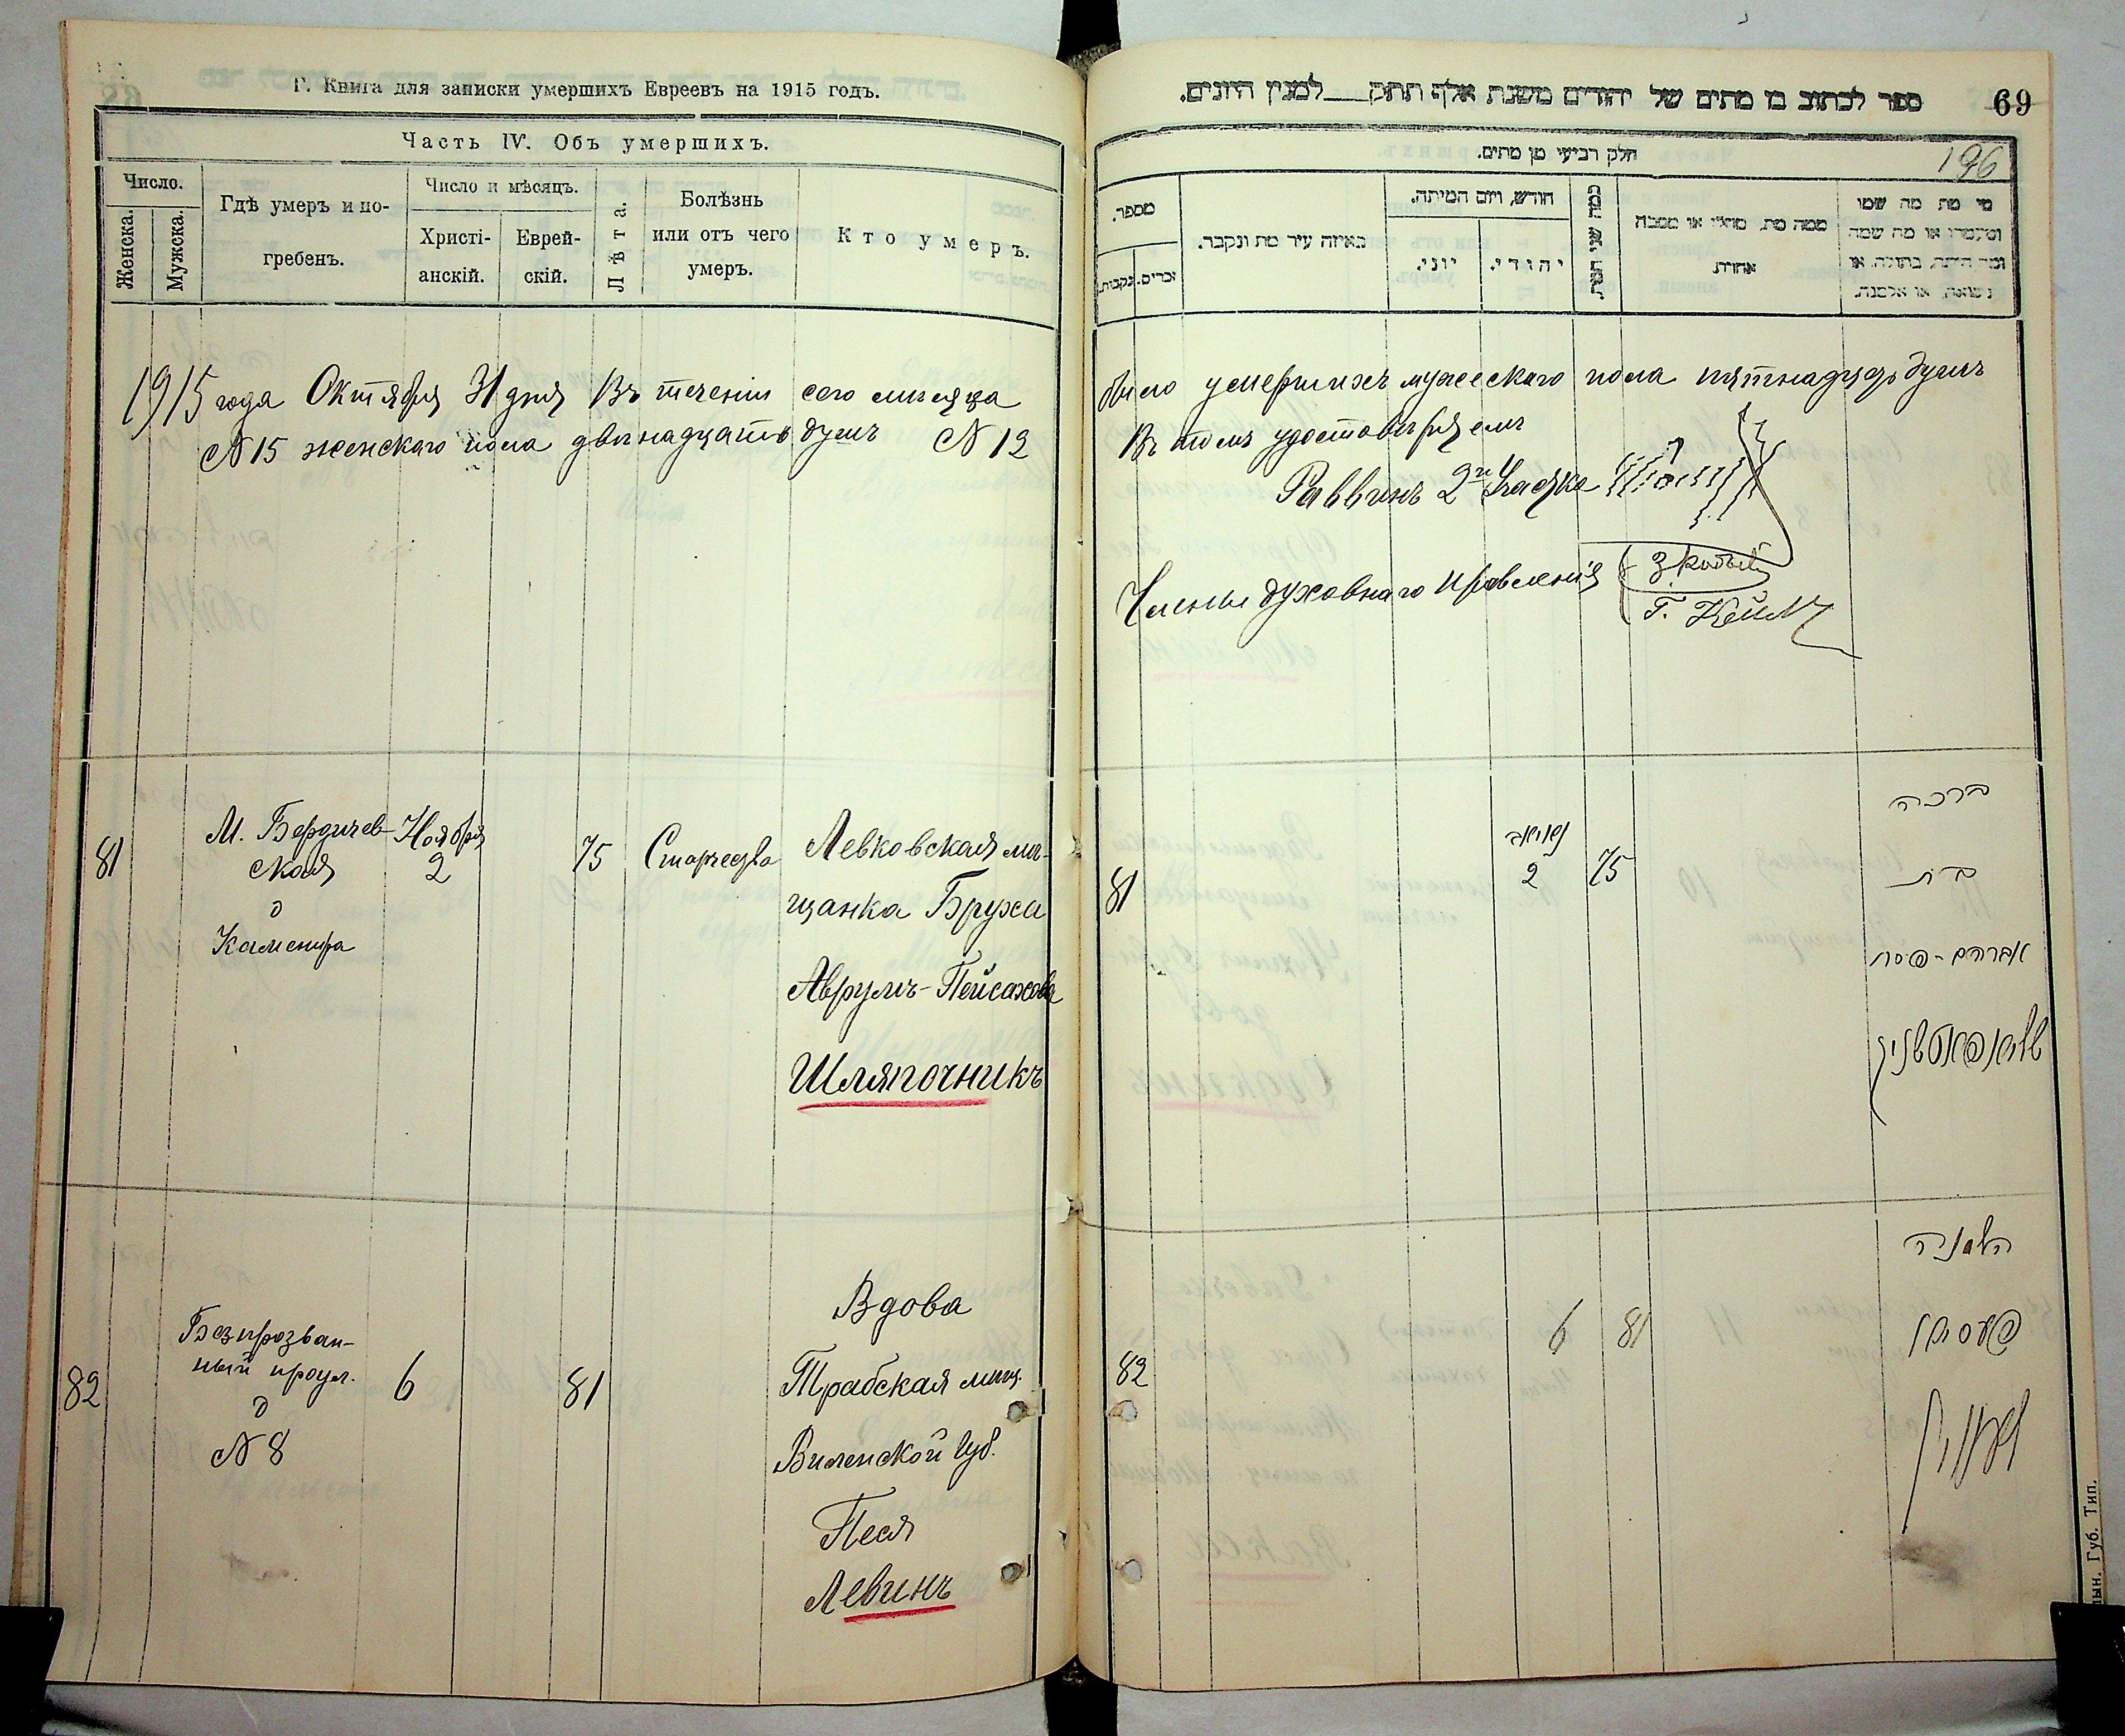 Г. Книга для записки умершихъ Евреевъ на 1915 годъ.
Часть IV. Объ умершихъ.
Число.
Женска.
Мужска.
Гдѣ умеръ и по-
гребенъ.
Число и мѣсяцъ.
Христі-
анскій.
Еврей-
скій.
Лѣта.
Болѣзнь
или отъ чего
умеръ.
Кто умеръ.
1915 года Октября 31 дня Въ теченіи сего мѣсяца
№ 15 женскаго пола двѣнадцать душъ № 12
81
М. Бердичев-
ская
д
Каменира
Ноября
2
75
Старчества
Левковская мѣ-
щанка Бруха
Аврумъ-Пейсахова
Шляпочникъ
82
Безпрозван-
ный проул.
д
№ 8
6
81
Вдова
Трабская мѣщ.
Виленской Губ.
Песя
Левинъ
ספר לכתוב בו מתים של יהודים משנת אלף תתק__למנין היונים.
69
חלק רביעי מן מתים.
196
מספר.
זכרים.
נקבות.
באיזה עיר מת ונקבר.
חודש, ויום המיתה.
יוני.
יהודי.
כמה שני
ממה מת, מחלי או מסבה
אחרת
מי מת מה שמו
ומעמדו או מה שמה
ומה היתה, בתולה, או
נשואה, או אלמנה.
было умершихъ мужескаго пола пятнадцать душъ
Въ томъ удостовѣряемъ
Раввинъ 2го Участка
Члены духовнаго правленія
81
2
75
ברכה
בת
אברהם-פסח
שליאפאטשניק
82
6
81
אלמנה
פעסיא
לעווין
Губ. Тип.